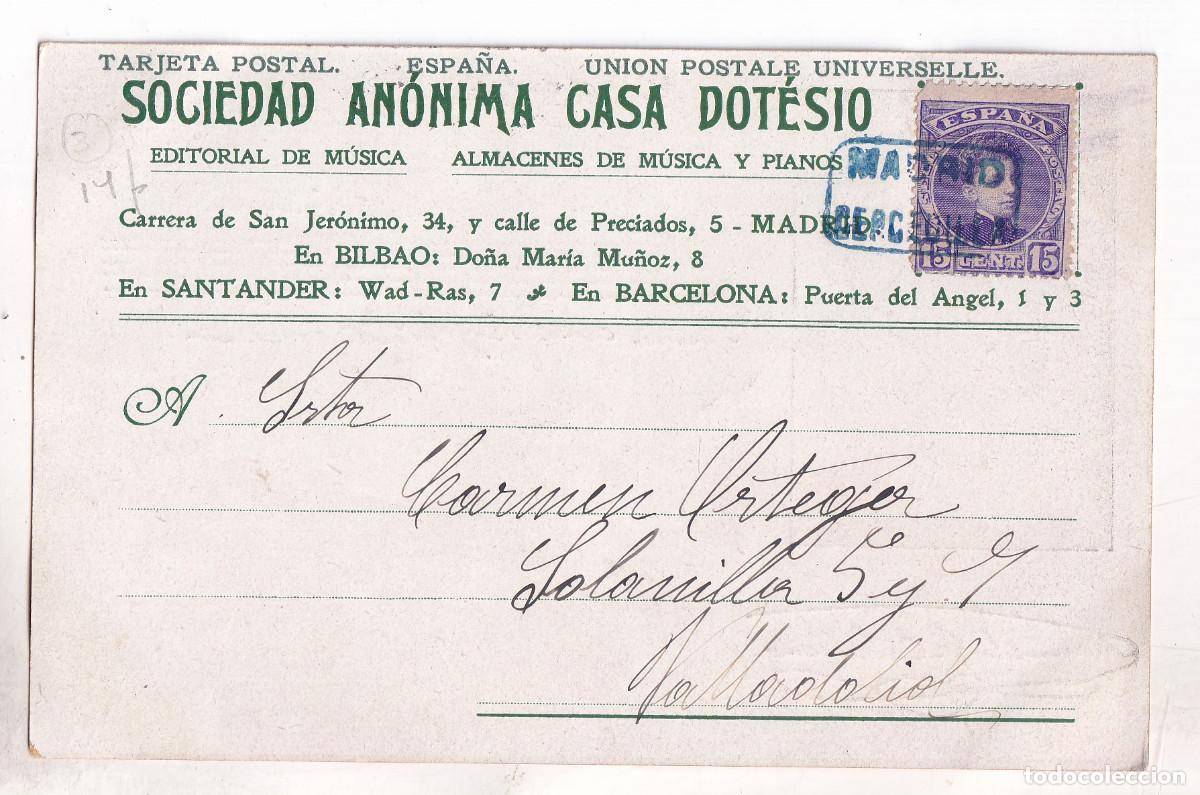 TARJETA POSTAL. ESPAÑA. UNION POSTALE UNIVERSELLE.
SOCIEDAD ANÓNIMA CASA DOTÉSIO
EDITORIAL DE MÚSICA ALMACENES DE MÚSICA Y PIANOS
Carrera de San Jerónimo, 34, y calle de Preciados, 5 - MADRID.
En BILBAO: Doña María Muñoz, 8
En SANTANDER: Wad-Ras, 7 En BARCELONA: Puerta del Angel, 1 y 3
ESPAÑA
15 CENT. 15
MADRID
CERCEDILLA
3
A Srta
Carmen Ortega
Solanilla 5 y 7
Valladolid
todocoleccion